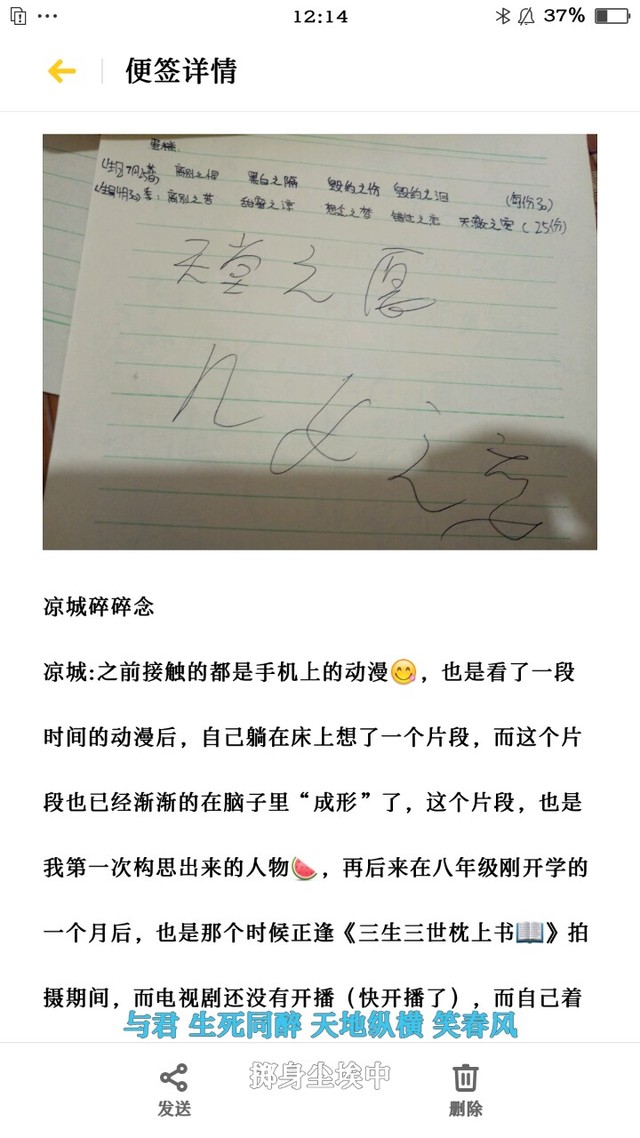 12:14
37%
便签详情
蛋糕
离别之恨 黑白之隔 毁的之伤 毁的之泪 (每份30)
离别之苦 甜蜜之凉 想念之梦 错过之恋 (25份)
天堂之
之
凉城碎碎念
凉城:之前接触的都是手机上的动漫😋，也是看了一段
时间的动漫后，自己躺在床上想了一个片段，而这个片
段也已经渐渐的在脑子里“成形”了，这个片段，也是
我第一次构思出来的人物🍉，再后来在八年级刚开学的
一个月后，也是那个时候正逢《三生三世枕上书📖》拍
摄期间，而电视剧还没有开播（快开播了），而自己着
与君 生死同醉 天地纵横 笑春风
掷身尘埃中
发送 删除